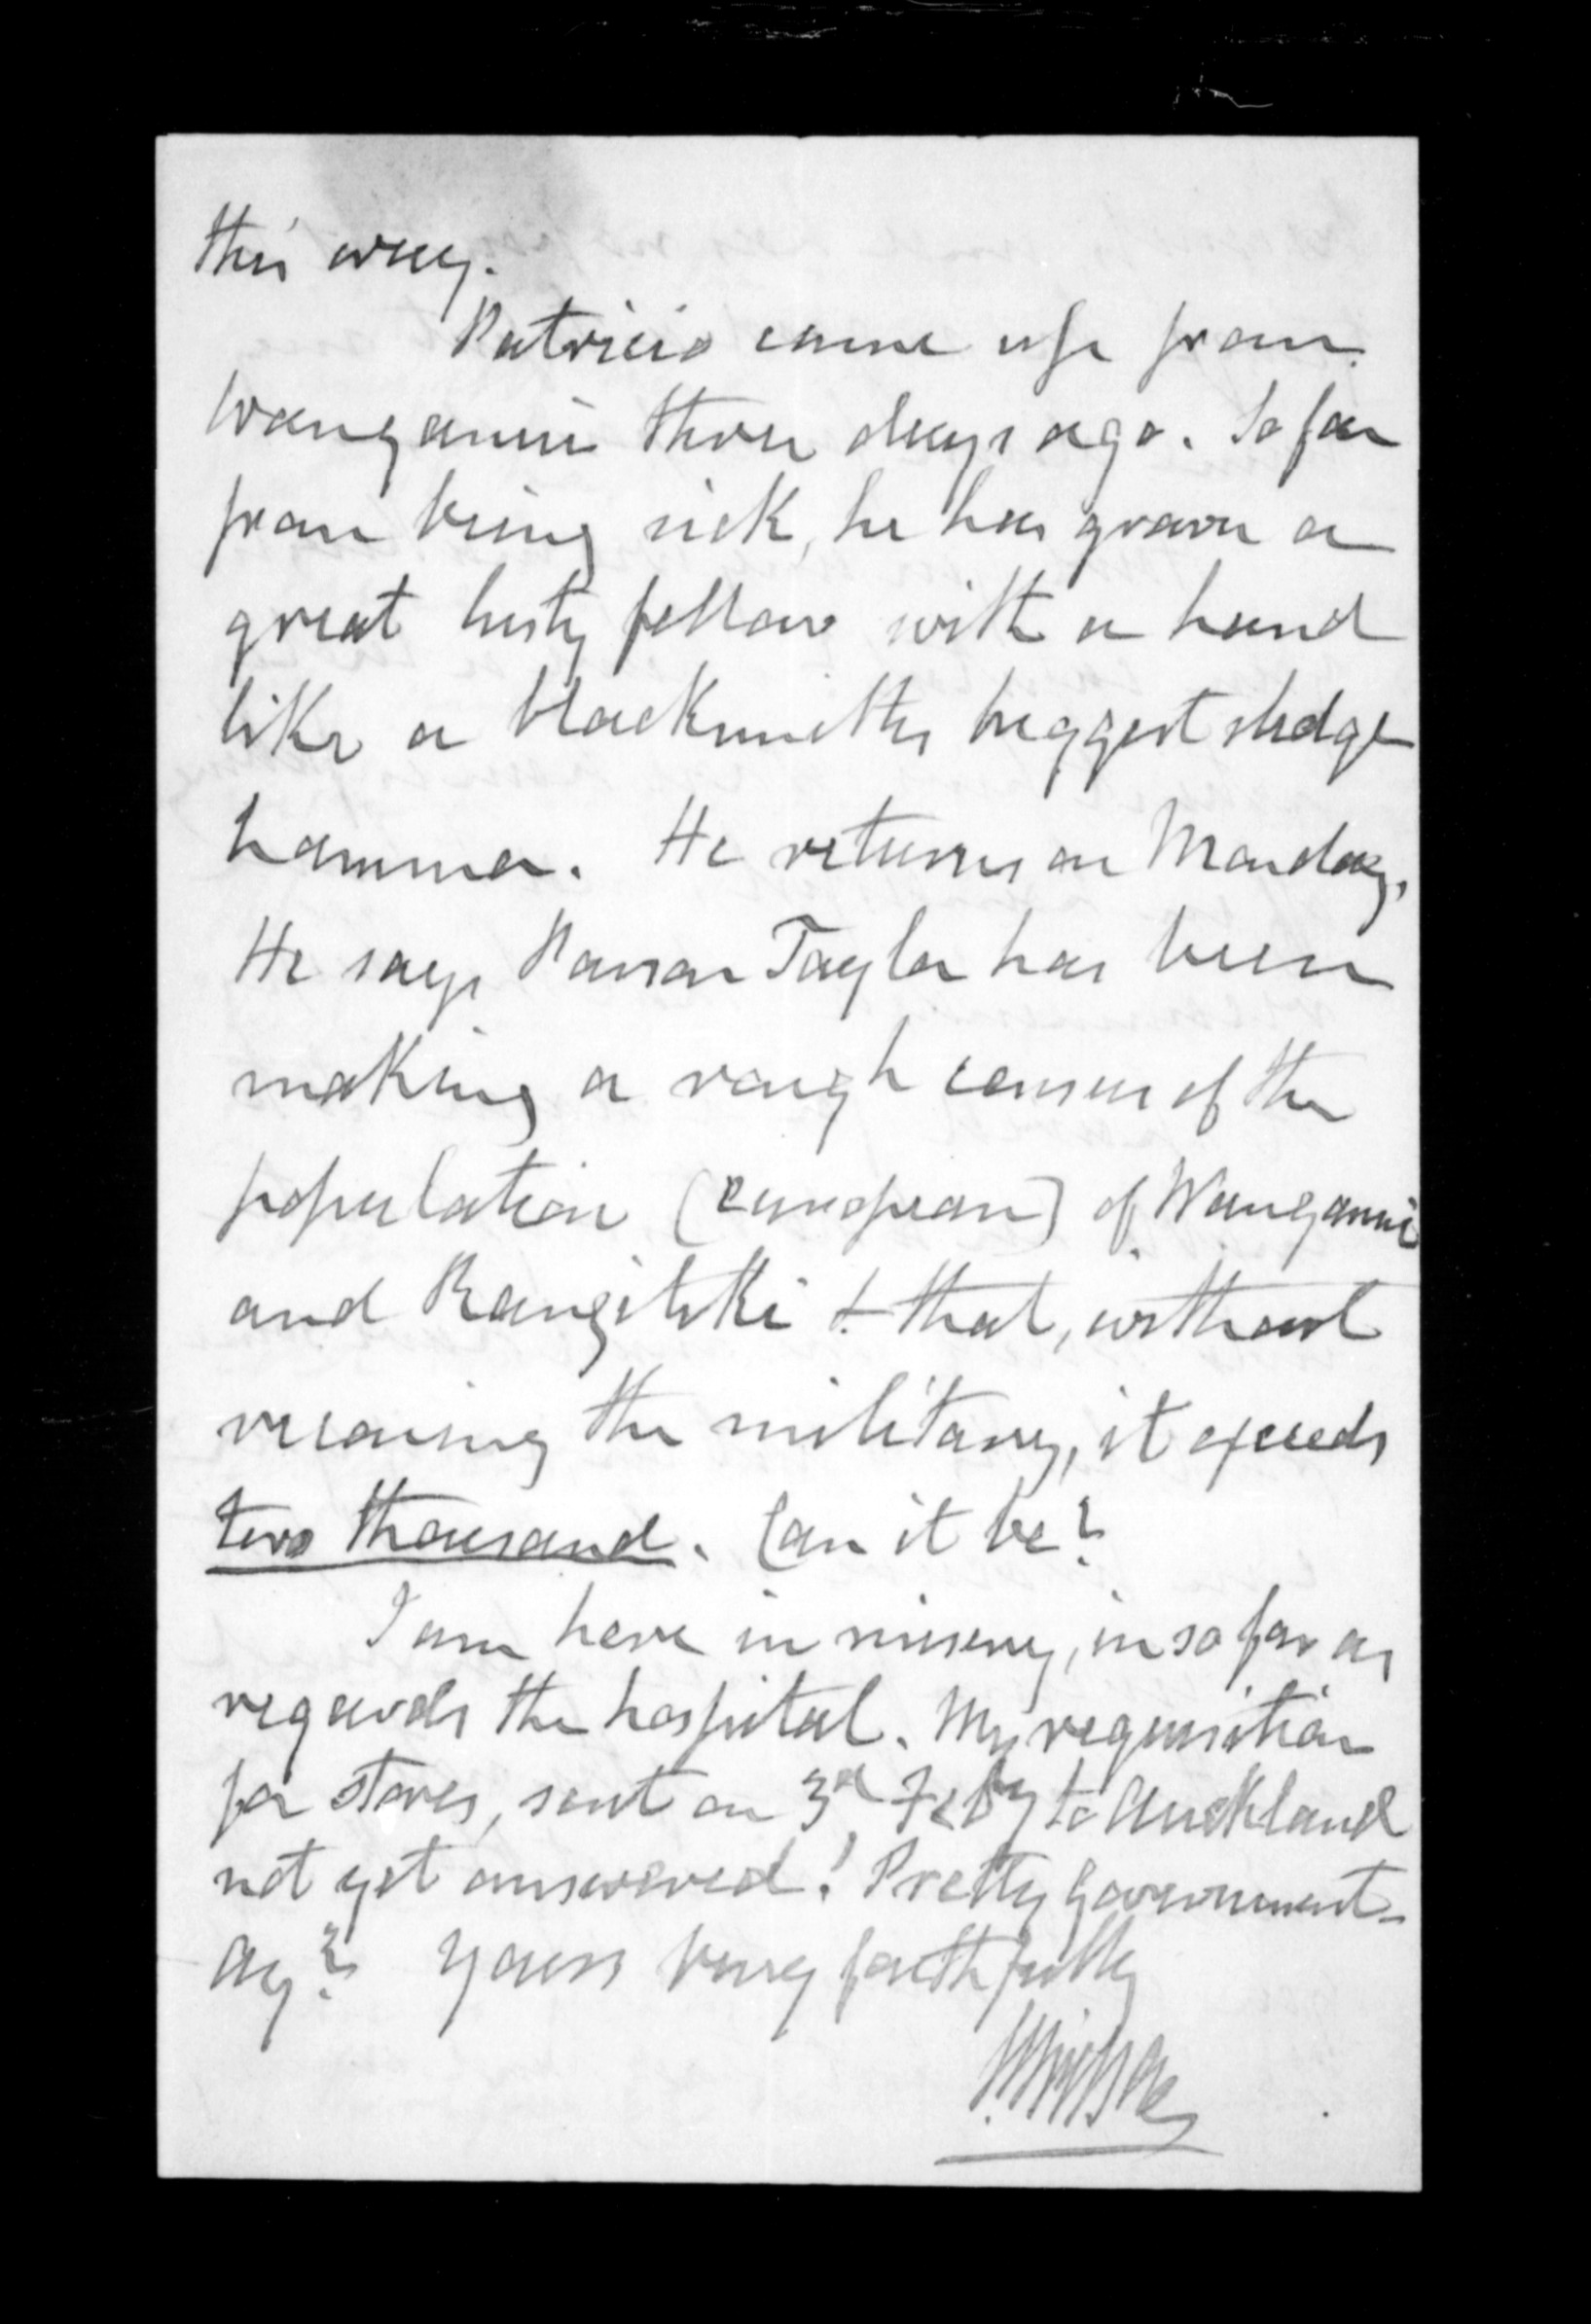 this way.
Patricio came up from
Wanganui three days ago. So far
from being sick, he has grown a
great lusty fellow with a hand
like a blacksmiths biggest sledge
hammer. He returns on Monday.
He says Parson Taylor has been
making a rough census of the
population (European) of Wanganui
and Rangitiki & that, without
the military, it exceeds
two thousand. Can it be?
I am here in misery, in so far as
regards the hospital. My requisition
for stores, sent on 3d Feby to Auckland
not yet answered! Pretty Government-
Ay? Yours very faithfully